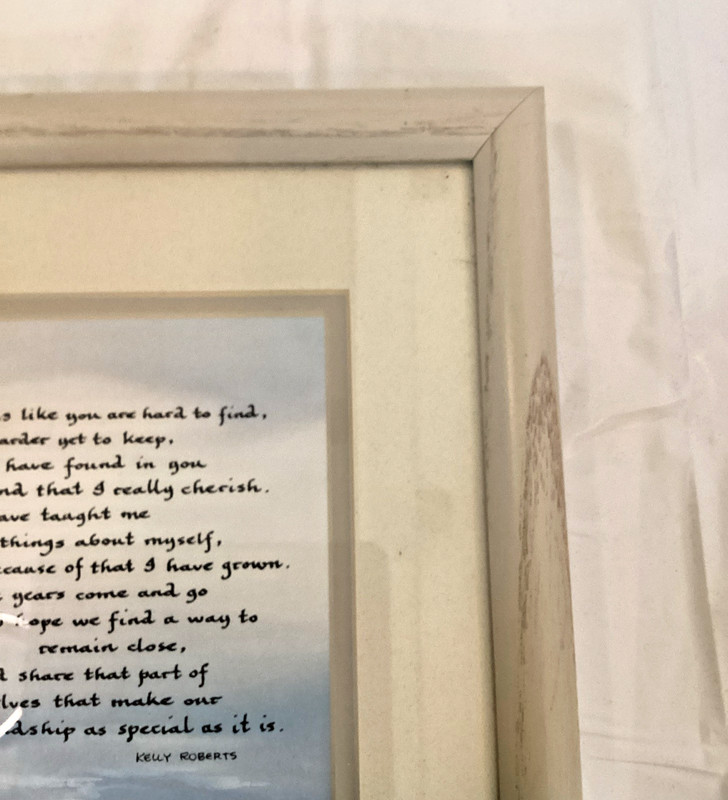 like you are hard to find,
yet to keep,
have found in you
that I really cherish.
taught me
things about myself,
of that I have grown.
years come and go
we find a way to
remain close,
share that part of
that make our
as special as it is.
KELLY ROBERTS